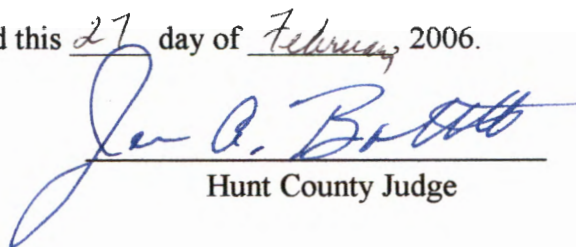 d this 27 day of February, 2006.
A. Bobbitt
Hunt County Judge